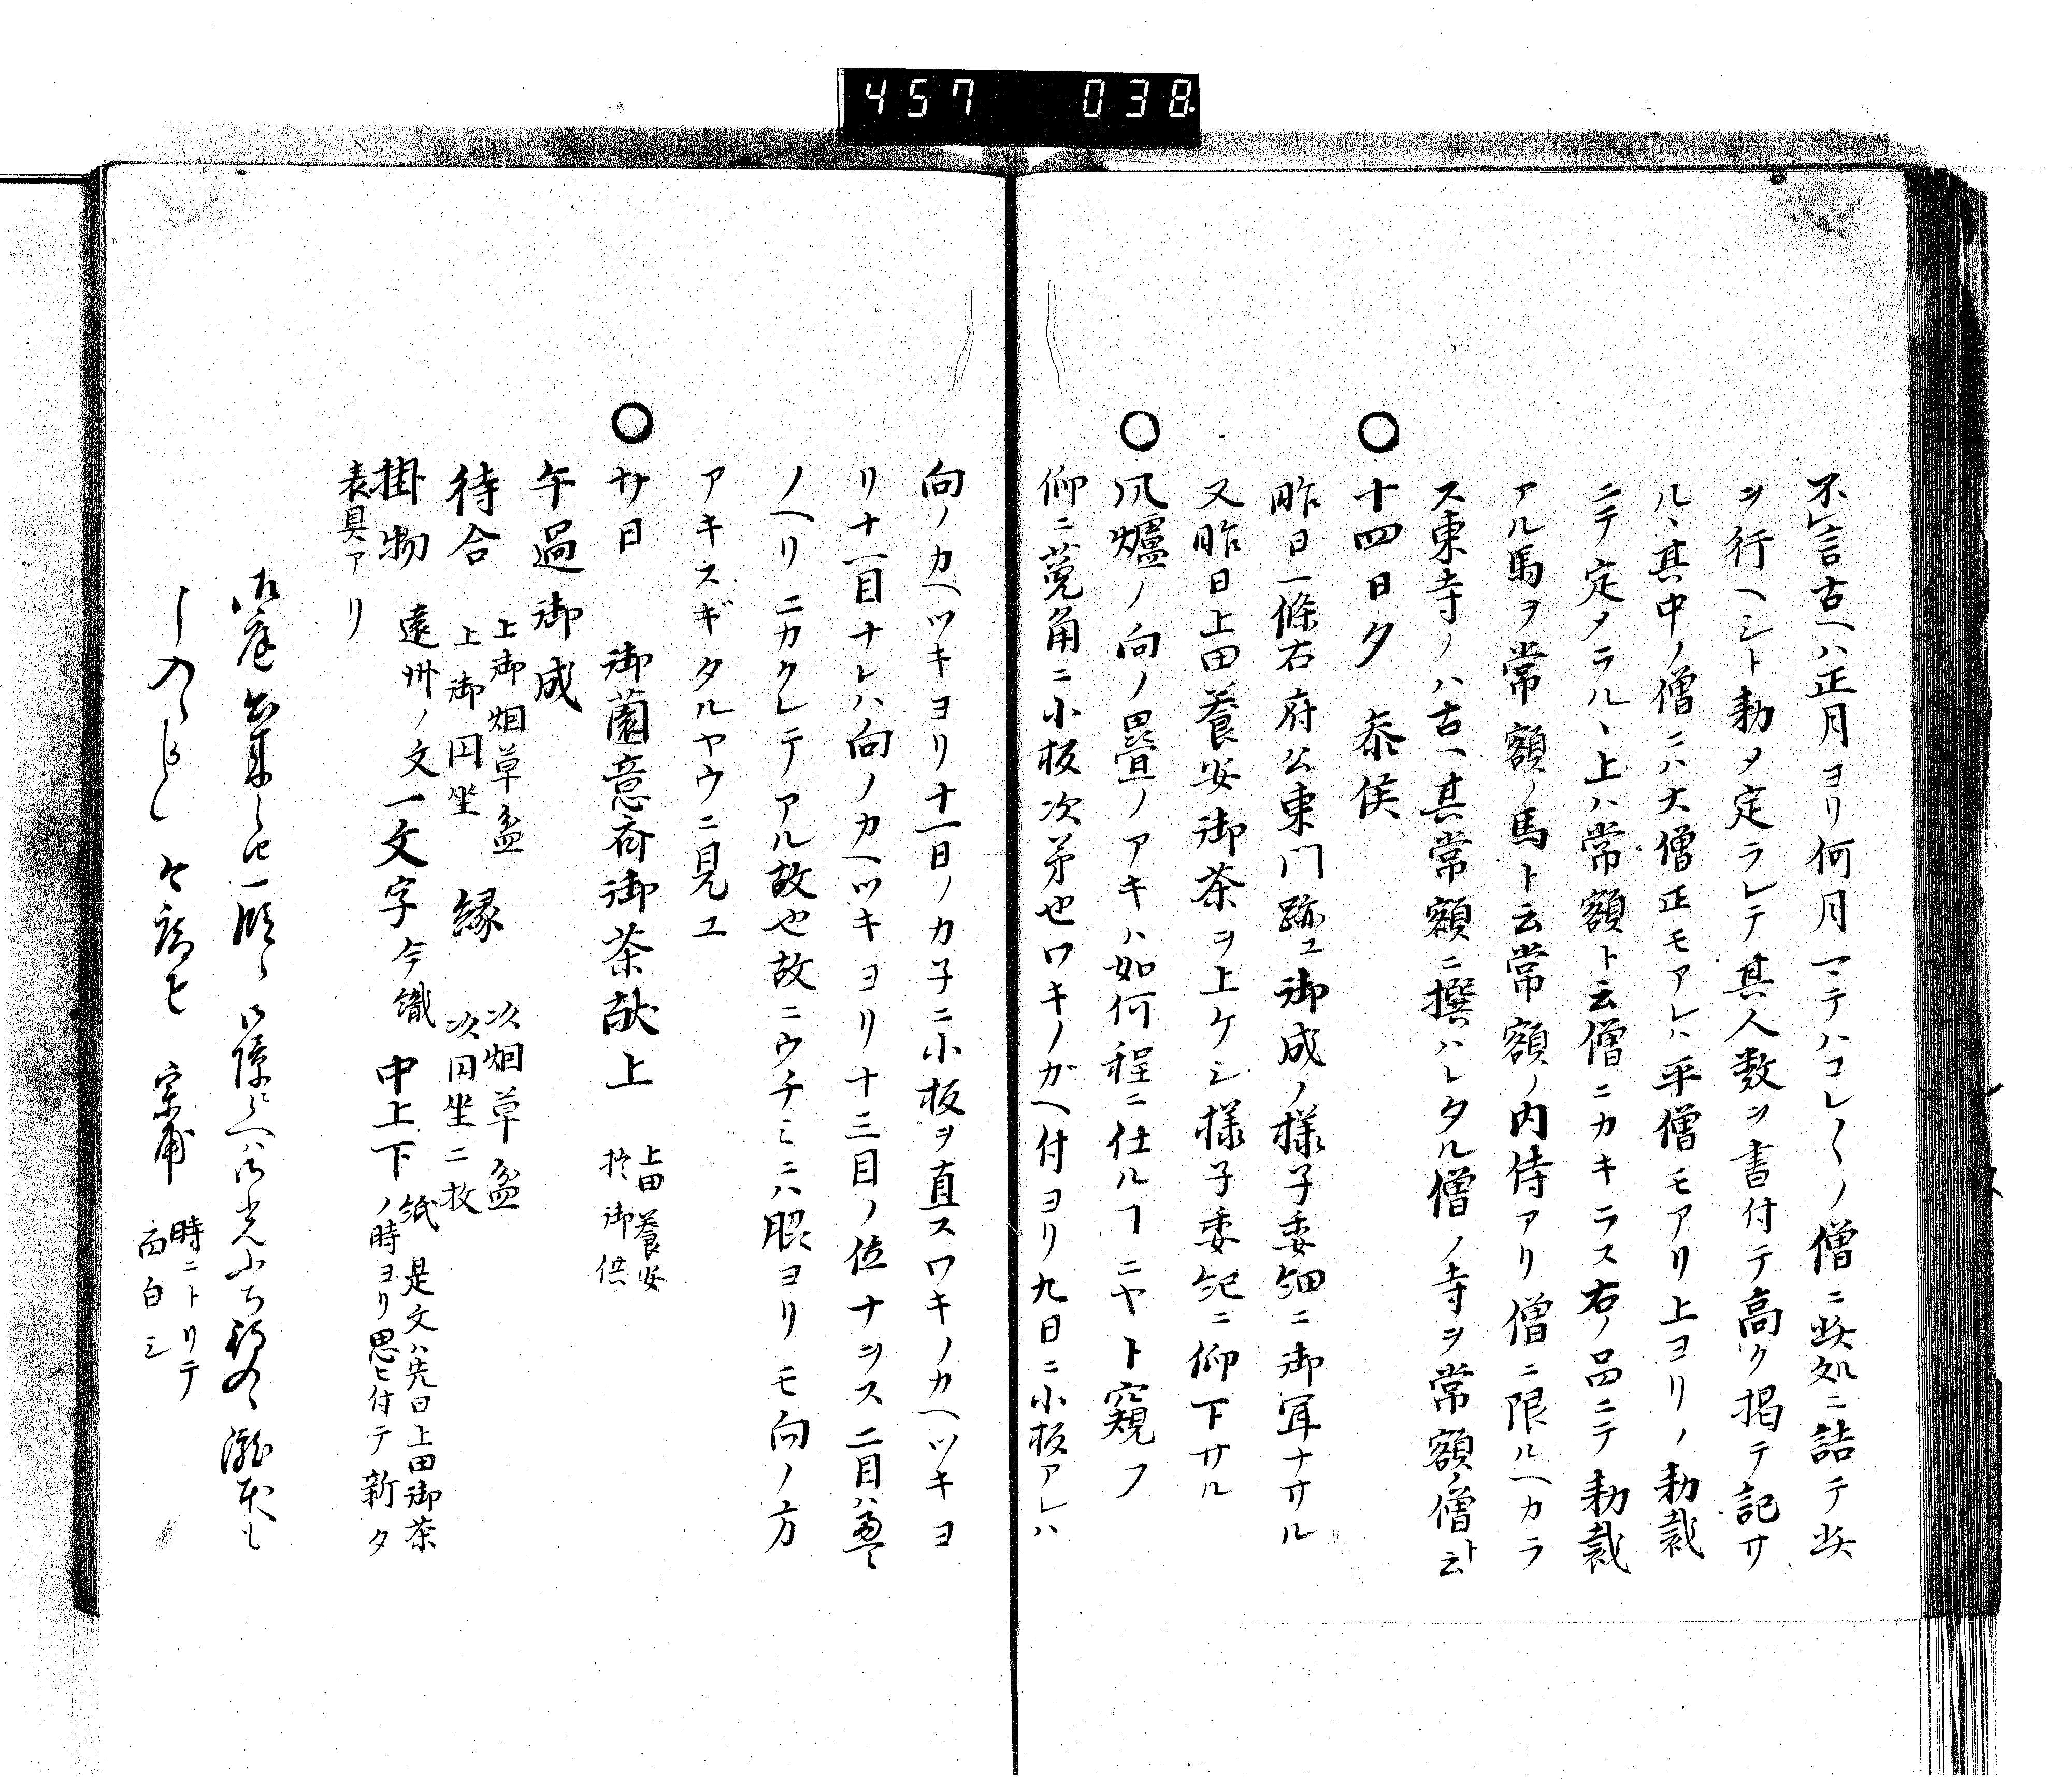 457 038
不言古ヘハ正月ヨリ何月マテハコレ〱ノ僧ニ此処ニ詰テ此
ヲ行ヘシト勅タ定ラレテ其人数ヲ書付テ高ク掲テ記サ
ルヽ其中ノ僧ニハ大僧正モアレハ平僧モアリ上ヨリノ勅裁
ニテ定タラルヽ上ハ常額ト云僧ニカキラス右ノ品ニテ勅裁
アル馬ヲ常額ノ馬ト云常額ノ内侍アリ僧ニ限ルヘカラ
ス東寺ノハ古ヘ其常額ニ撰ハレタル僧ノ寺ヲ常額ノ僧ト云
○十四日夕 参候
昨日一條右府公東門跡エ御成ノ様子委細ニ御耳ナサル
又昨日上田養安御茶ヲ上ケシ様子委記ニ仰下サル
○風爐ノ向ノ畳ノアキハ如何程ニ仕ルコニヤト窺フ
仰ニ莵角ニ小板次第也ワキノカヘ付ヨリ九目ニ小板アレハ
向ノカヘツキヨリ十一目ノカ子ニ小板ヲ直スワキノカヘツキヨ
リ十一目ナレハ向ノカヘツキヨリ十三目ノ位ナヲス二目ハ畳
ノヘリニカクレテアル故也故ニウチミニハ脇ヨリモ向ノ方
アキスギタルヤウニ見ユ
○廿日 御薗意斎御茶献上 上田養安
於御供
午過御成
待合 上御烟草盆 縁 次烟草盆
上御円坐 次円坐二枚
掛物 遠州ノ文一文字今織 中上下紙 是文ハ先日上田御茶
ノ時ヨリ思ヒ付テ新タ
表具アリ
宗甫 時ニトリテ
面白シ